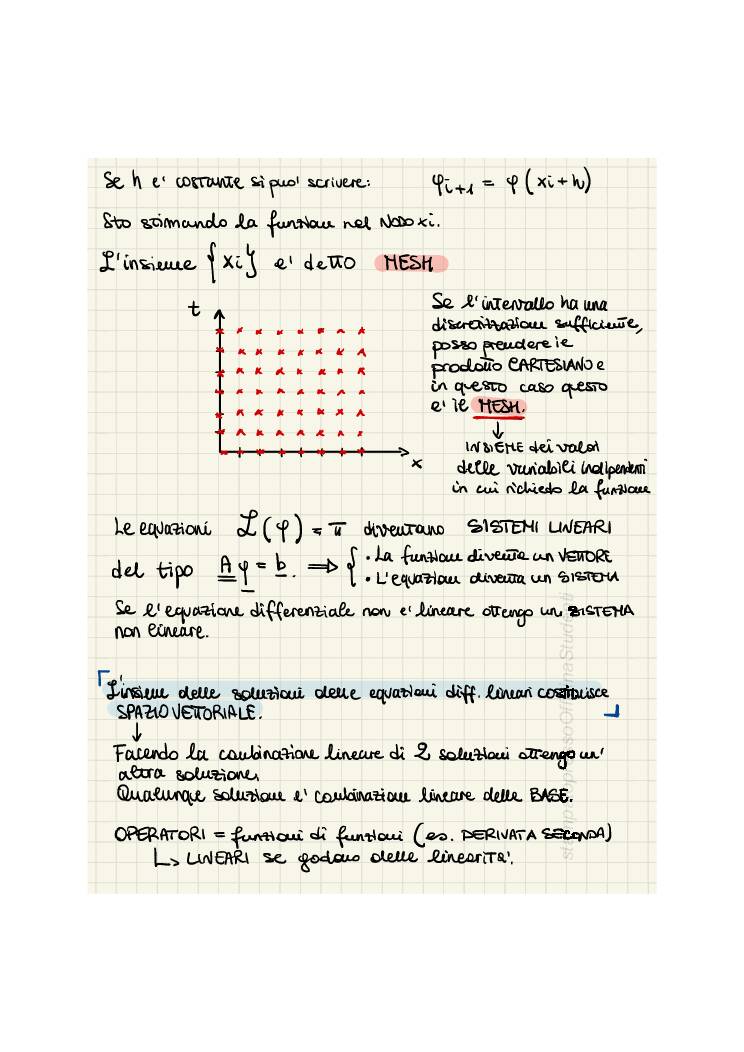 Se h e' costante si puo' scrivere: φi+1 = φ(xi+h)
Sto stimando la funzione nel NODO xi.
L'insieme {xi} e' detto MESH
t
x
Se l'intervallo ha una
discretizzazione sufficiente,
posso prendere il
prodotto CARTESIANO e
in questo caso questo
e' il MESH.
↓
INSIEME dei valori
delle variabili indipendenti
in cui richiedo la funzione
Le equazioni ℒ(φ) = π diventano SISTEMI LINEARI
del tipo A φ = b. ⇒ { • La funzione diventa un VETTORE
• L'equazione diventa un SISTEMA
Se l'equazione differenziale non e' lineare ottengo un SISTEMA
non lineare.
L'insieme delle soluzioni delle equazioni diff. lineari costituisce
SPAZIO VETTORIALE.
↓
Facendo la combinazione lineare di 2 soluzioni ottengo un'
altra soluzione,
Qualunque soluzione e' combinazione lineare delle BASE.
OPERATORI = funzioni di funzioni (es. DERIVATA SECONDA)
↳ LINEARI se godono delle linearità.